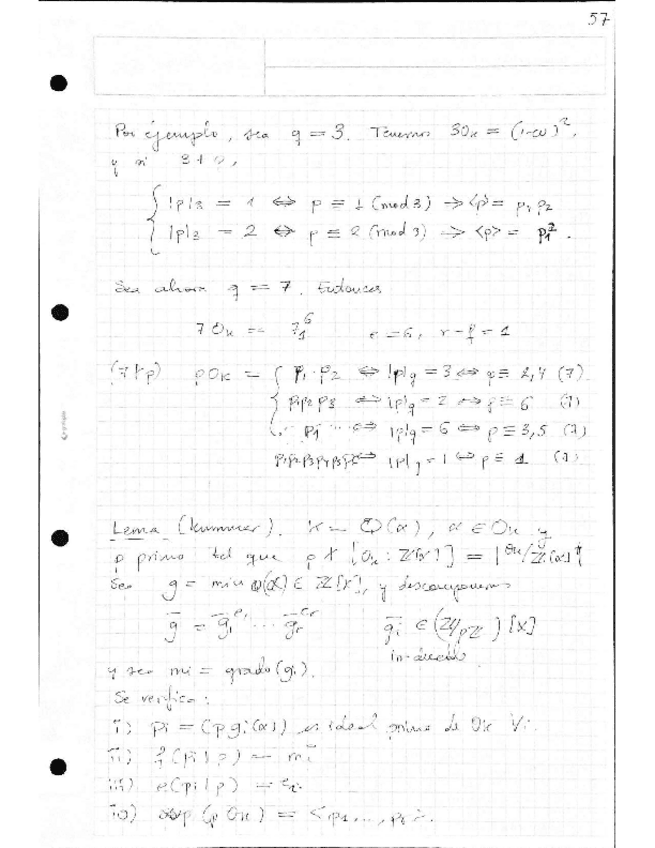 57
Por ejemplo, sea q = 3. Tenemos 3O_K = (1-ω)²,
y si 3 ∤ p,
|p|₃ = 1 ⇔ p ≡ 1 (mod 3) → <p> = p₁ p₂
|p|₃ = 2 ⇔ p ≡ 2 (mod 3) → <p> = p₁² .
Sea ahora q = 7. Entonces
7 O_K = 7₁⁶ e = 6, r = f = 1
(7∤p) pO_K = { p₁ · p₂ ⇔ |p|q = 3 ⇔ p ≡ 2,4 (7)
p₁p₂p₃ ⇔ |p|q = 2 ⇔ p ≡ 6 (7)
p₁ ⇔ |p|q = 6 ⇔ p ≡ 3,5 (7)
p₁p₂p₃p₄p₅p₆ ⇔ |p|q = 1 ⇔ p ≡ 1 (7)
Lema (Kummer). K = Q(α), α ∈ O_K y
p primo tal que p ∤ [O_K : Z[α]] = |O_K/Z[α]|
Sea g = min Q(α) ∈ Z[X], y descomponemos
ḡ = ḡ₁^e₁ ... ḡr^er ḡi ∈ (Z/pZ)[X]
irreducible
y sea mi = grado(gi).
Se verifica:
i) pi = (p gi(α)) es ideal primo de O_K ∀i.
ii) f(pi|p) = mi
iii) e(pi|p) = ei
iv) (p O_K) = <p₁..., pr>.